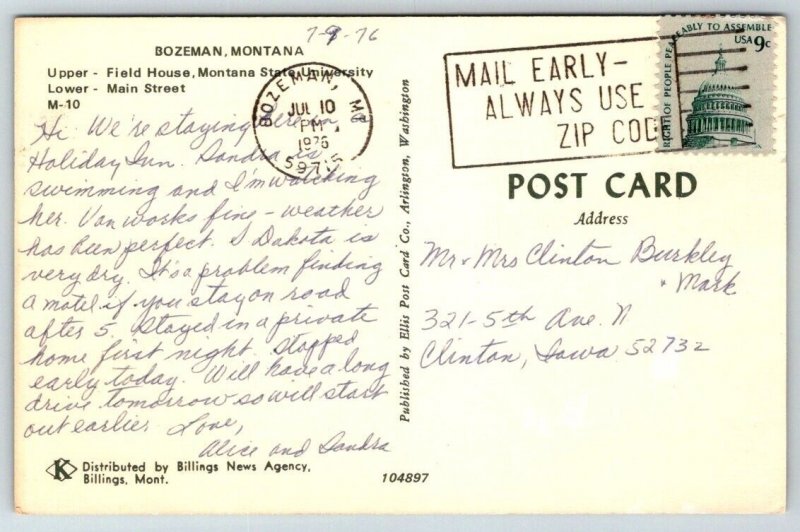 7-9-76
BOZEMAN, MONTANA
Upper - Field House, Montana State University
Lower - Main Street
M-10
Hi We're staying here in a
Holiday Inn. Sandra is
swimming and I'm watching
her. Van works fine - weather
has been perfect. S Dakota is
very dry. It's a problem finding
a motel if you stay on road
after 5. Stayed in a private
home first night. Stopped
early today. Will have a long
drive tomorrow so will start
out earlier. Love,
Alice and Sandra
K Distributed by Billings News Agency,
Billings, Mont.
104897
Published by Ellis Post Card Co., Arlington, Washington
BOZEMAN, MT
JUL 10
PM
1976
59715
MAIL EARLY-
ALWAYS USE
ZIP COD
RIGHT OF PEOPLE PEACEABLY TO ASSEMBLE
USA 9c
POST CARD
Address
Mr & Mrs Clinton Burkley
& Mark
321-5th Ave. N
Clinton, Iowa 52732